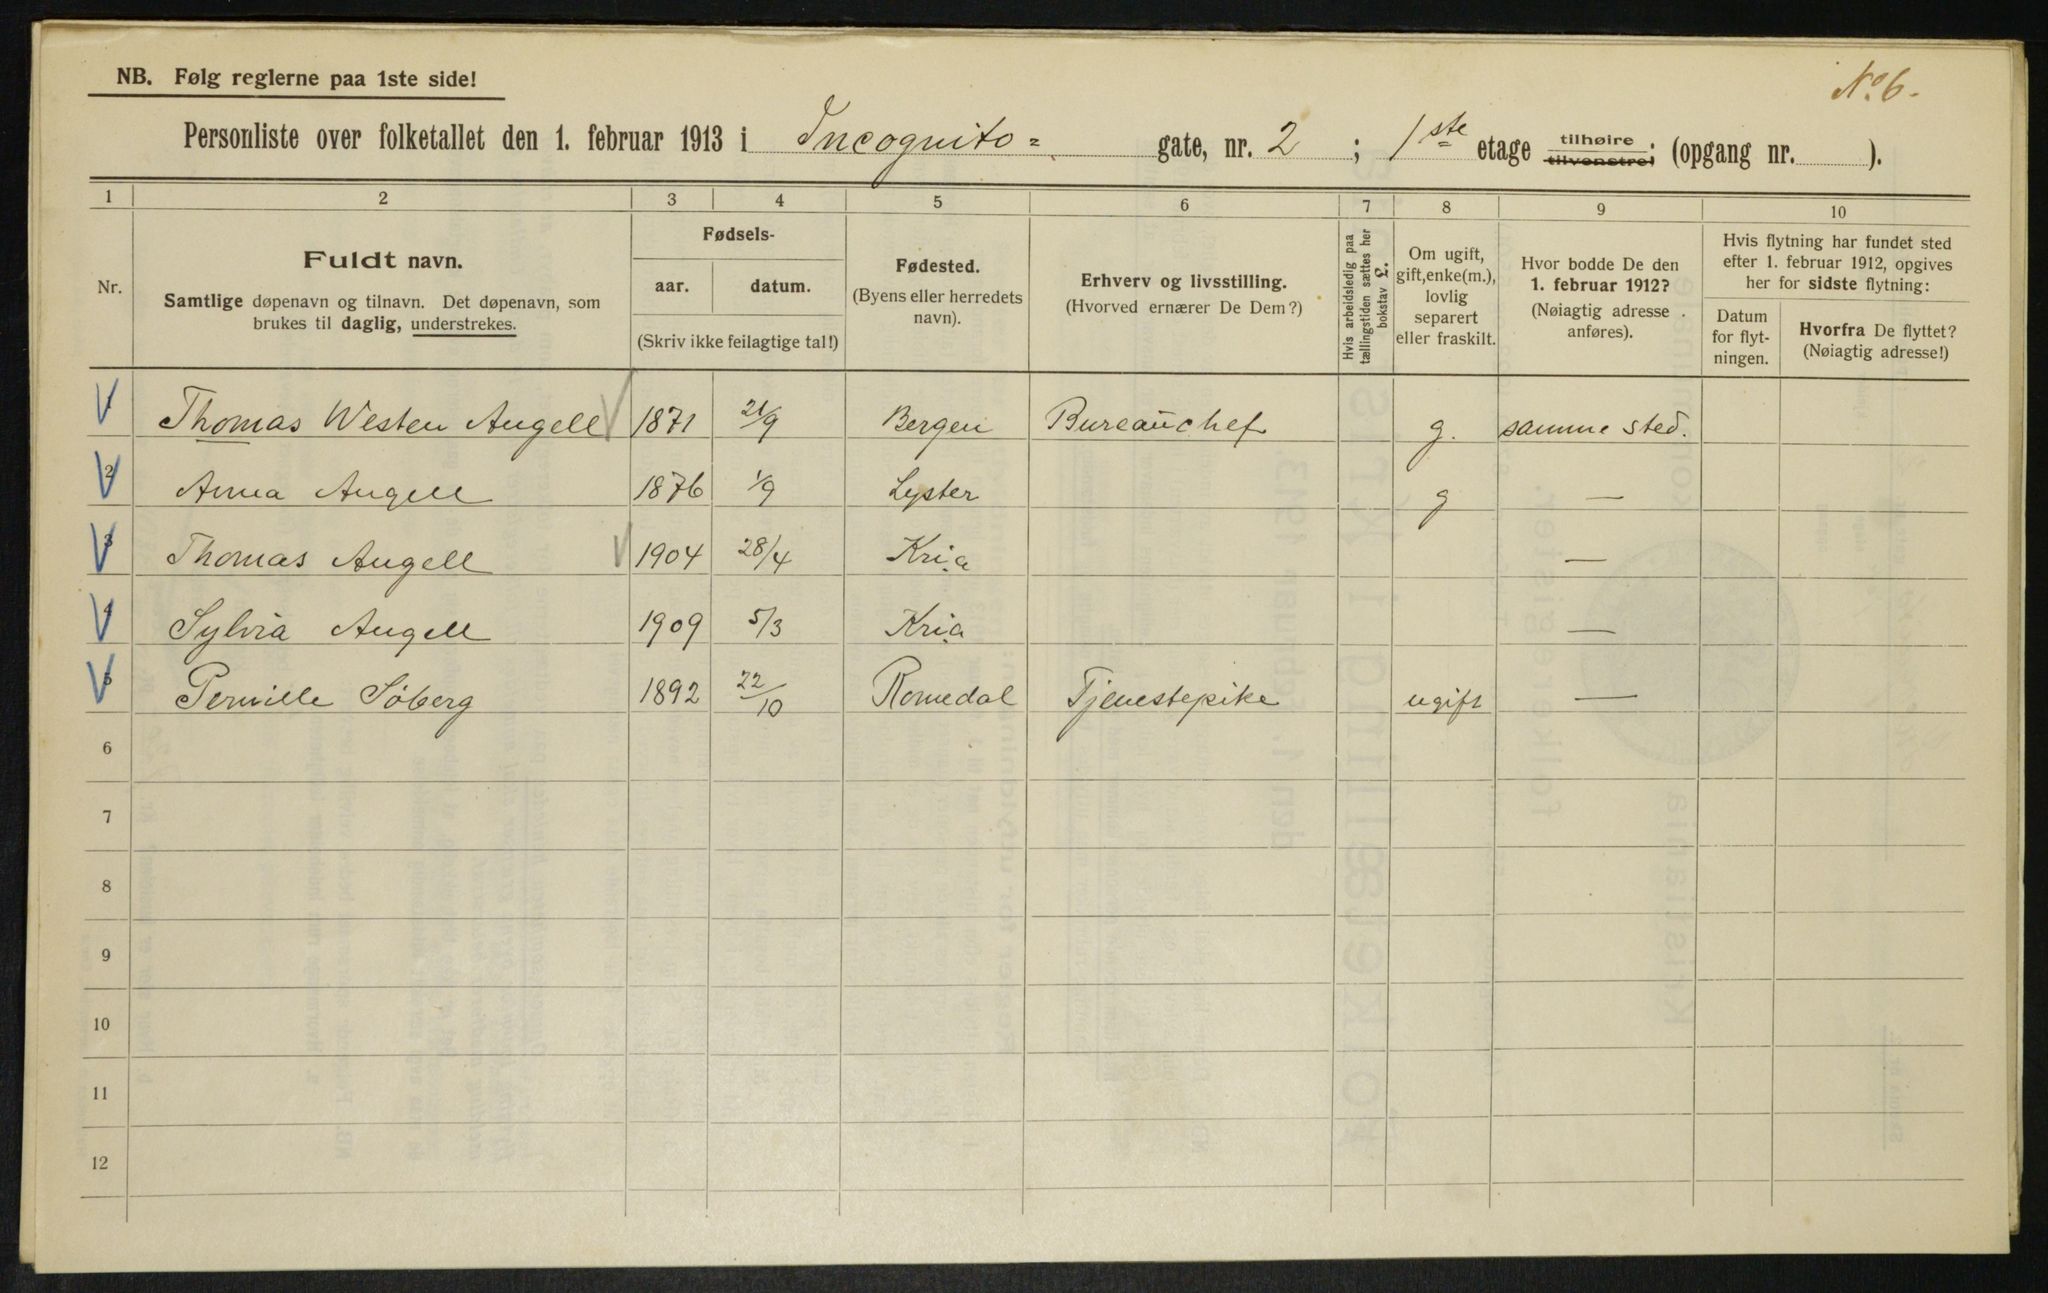 NB. Følg reglerne paa 1ste side!
No. 6.
Personliste over folketallet den 1. februar 1913 i Incognito= gate, nr. 2 ; 1ste etage tilhøire tilvenstre: (opgang nr. ).
1 2 3 4 5 6 7 8 9 10
Nr.
Fuldt navn.
Samtlige døpenavn og tilnavn. Det døpenavn, som
brukes til daglig, understrekes.
Fødsels-
aar. datum.
(Skriv ikke feilagtige tal!)
Fødested.
(Byens eller herredets
navn).
Erhverv og livsstilling.
(Hvorved ernærer De Dem?)
Hvis arbeidsledig paa
tællingstiden sættes her
bokstav £.
Om ugift,
gift, enke(m.),
lovlig
separert
eller fraskilt.
Hvor bodde De den
1. februar 1912?
(Nøiagtig adresse
anføres).
Hvis flytning har fundet sted
efter 1. februar 1912, opgives
her for sidste flytning:
Datum
for flyt-
ningen.
Hvorfra De flyttet?
(Nøiagtig adresse!)
1 Thomas Westen Angell 1871 21/9 Bergen Bureauchef g. samme sted.
2 Anna Angell 1876 1/9 Lyster g —
3 Thomas Angell 1904 28/4 Kria —
4 Sylvia Angell 1909 5/3 Kria —
5 Pernille Söberg 1892 22/10 Romedal Tjenestepike ugift —
6
7
8
9
10
11
12